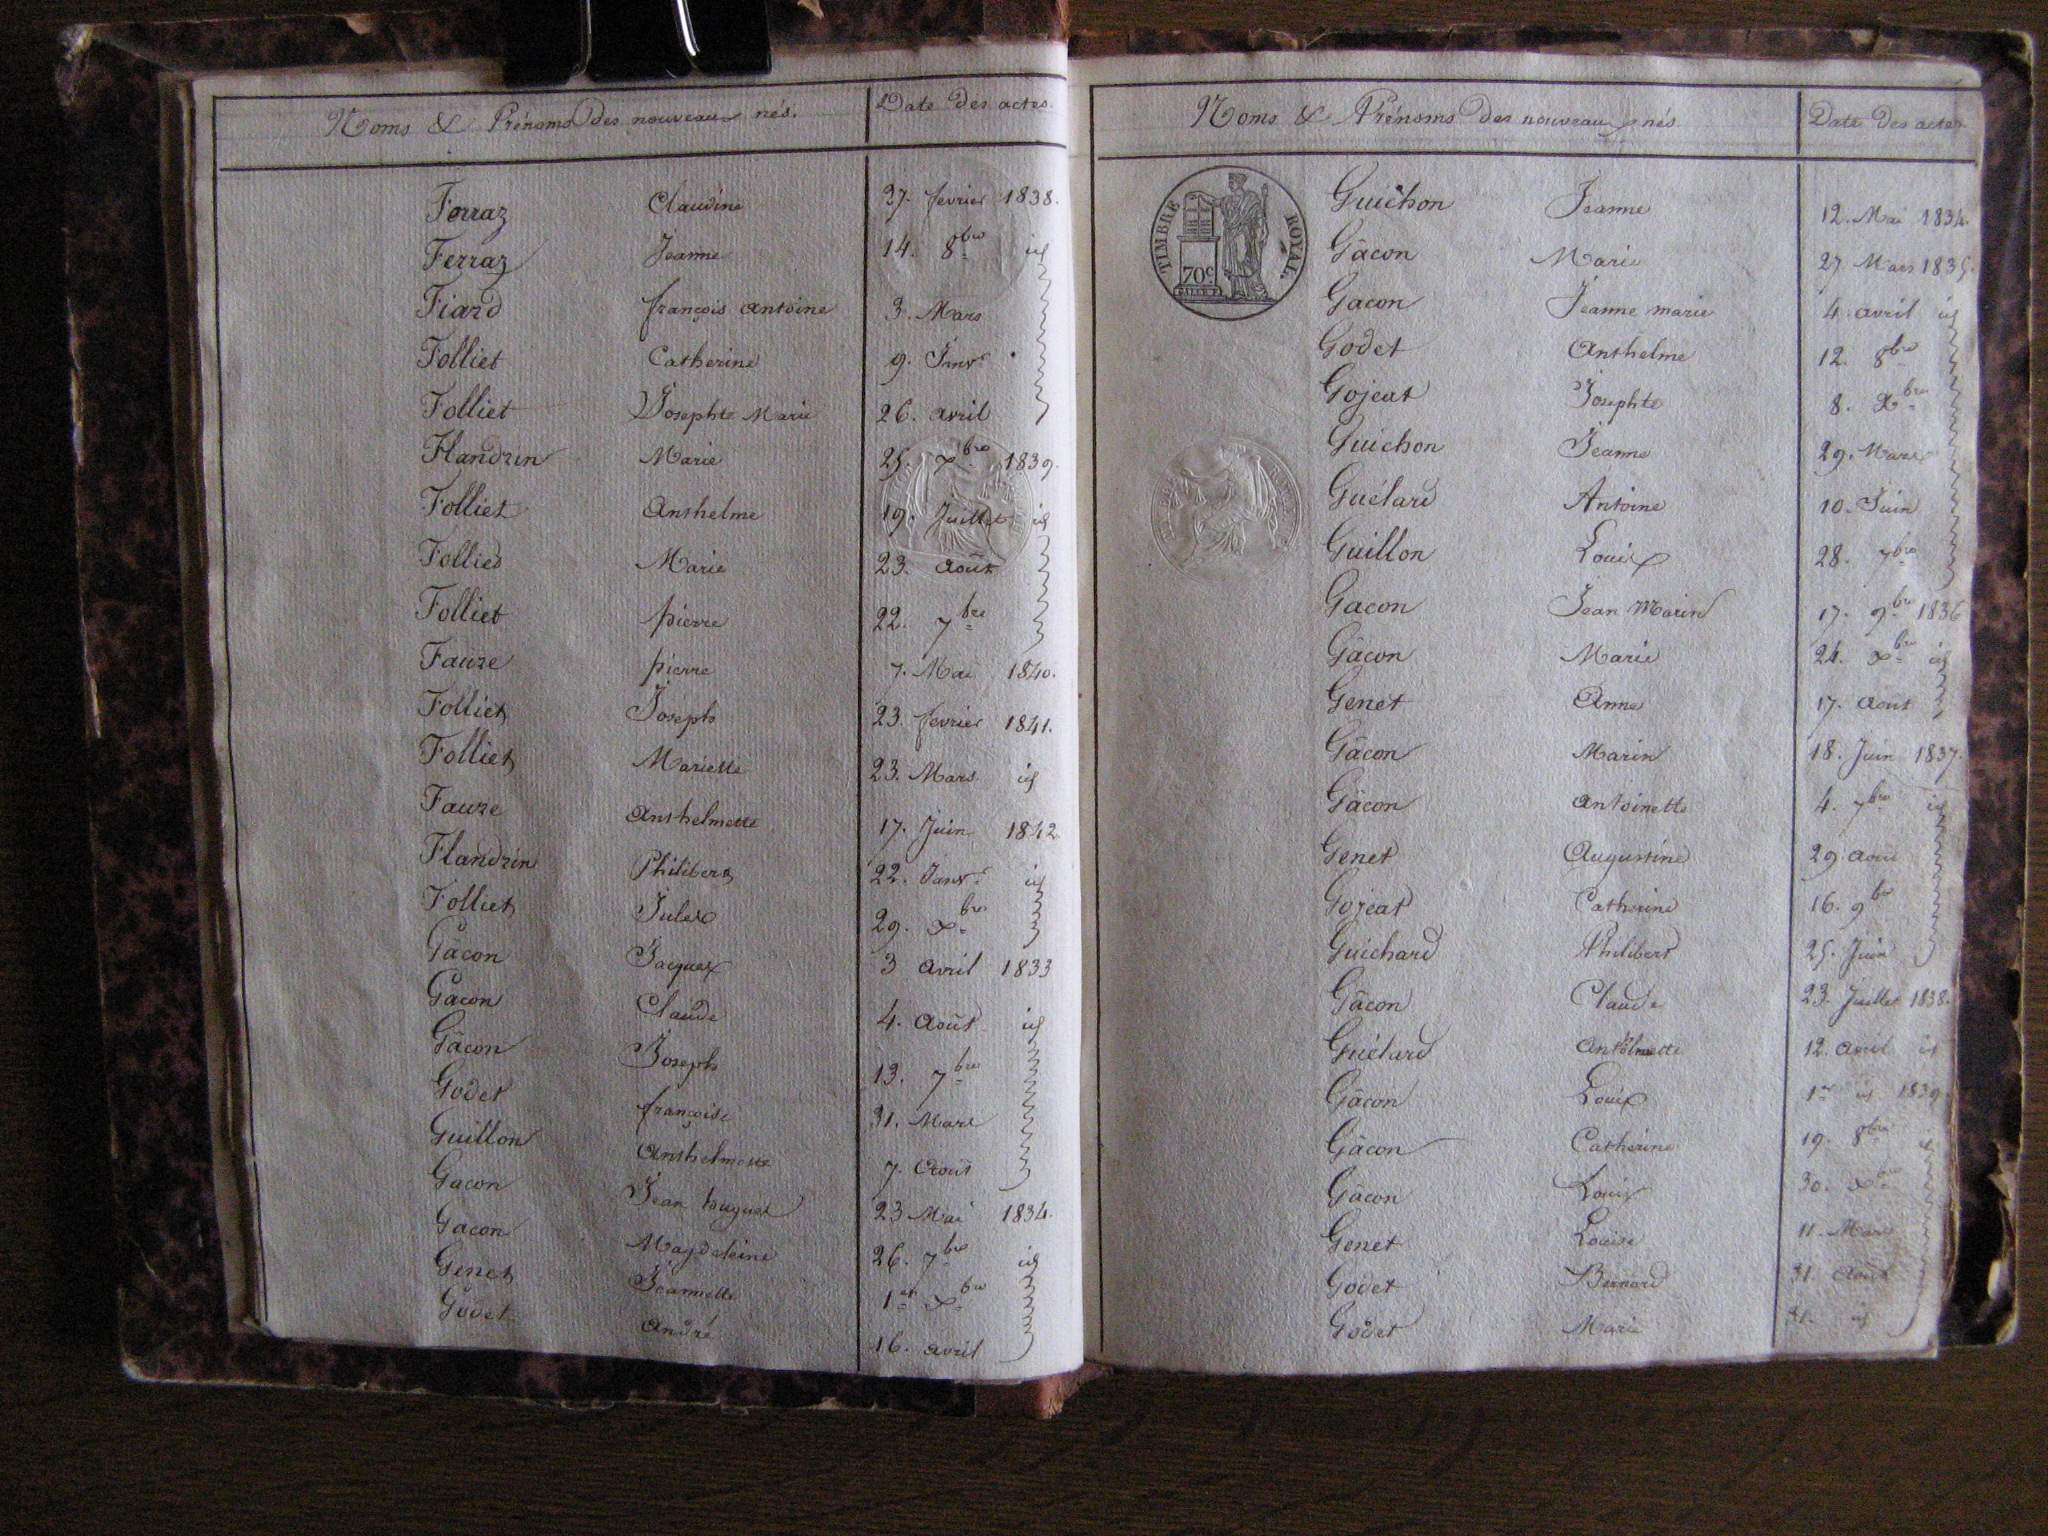 Noms & Prénoms des nouveaux nés. Date des actes.
Ferraz Claudine 27. fevrier 1838.
Ferraz Jeanne 14. 8bre id
Fiard françois antoine 3. Mars
Folliet Catherine 9. Janvr
Folliet Josephte Marie 26. avril
Flandrin Marie 25. xbre 1839.
Folliet Anthelme 19. Juillet id
Folliet Marie 23. août
Folliet pierre 22. 7bre
Faure pierre 7. Mai 1840.
Folliet Joseph 23. fevrier 1841.
Folliet Mariette 23. Mars id
Faure Anthelmette 17. Juin 1842.
Flandrin Philibert 22. Janvr id
Folliet Jules 29. xbre
Gâcon Jacques 3 avril 1833
Gacon Claude 4. Août id
Gâcon Joseph 13. 7bre
Godet françoise 31. Mars
Guillon Anthelmette 7. Août
Gacon Jean huguet 23 Mai 1834.
Gacon Magdeleine 26. 7bre id
Genet Jeannette 1er xbre
Godet André 16. avril
Noms & Prénoms des nouveaux nés Date des actes.
TIMBRE ROYAL.
70c
Guichon Jeanne 12. Mai 1834.
Gâcon Marie 27 Mars 1835.
Gacon Jeanne marie 4. avril id
Godet Anthelme 12. 8bre
Gojeat Josephte 8. xbre
Guichon Jeanne 29. Mars
Guélard Antoine 10. Juin
Guillon Louis 28. 7bre
Gacon Jean Marin 17. 9bre 1836
Gâcon Marie 24. xbre id
Genet Anne 17. Août
Gâcon Marin 18. Juin 1837.
Gâcon Antoinette 4. 7bre id
Genet Augustine 29. avril
Gojeat Catherine 16. 9bre
Guichard Philibert 25. Juin
Gâcon Claude 23. Juillet 1838.
Guélard 12. avril id
Gâcon Louis 1er id 1839.
Gâcon Catherine 19. 8bre id
Gâcon Louis 30. xbre
Genet Louise 11. Mars
Godet Bernard 31. Août
Godet Marie 31. id